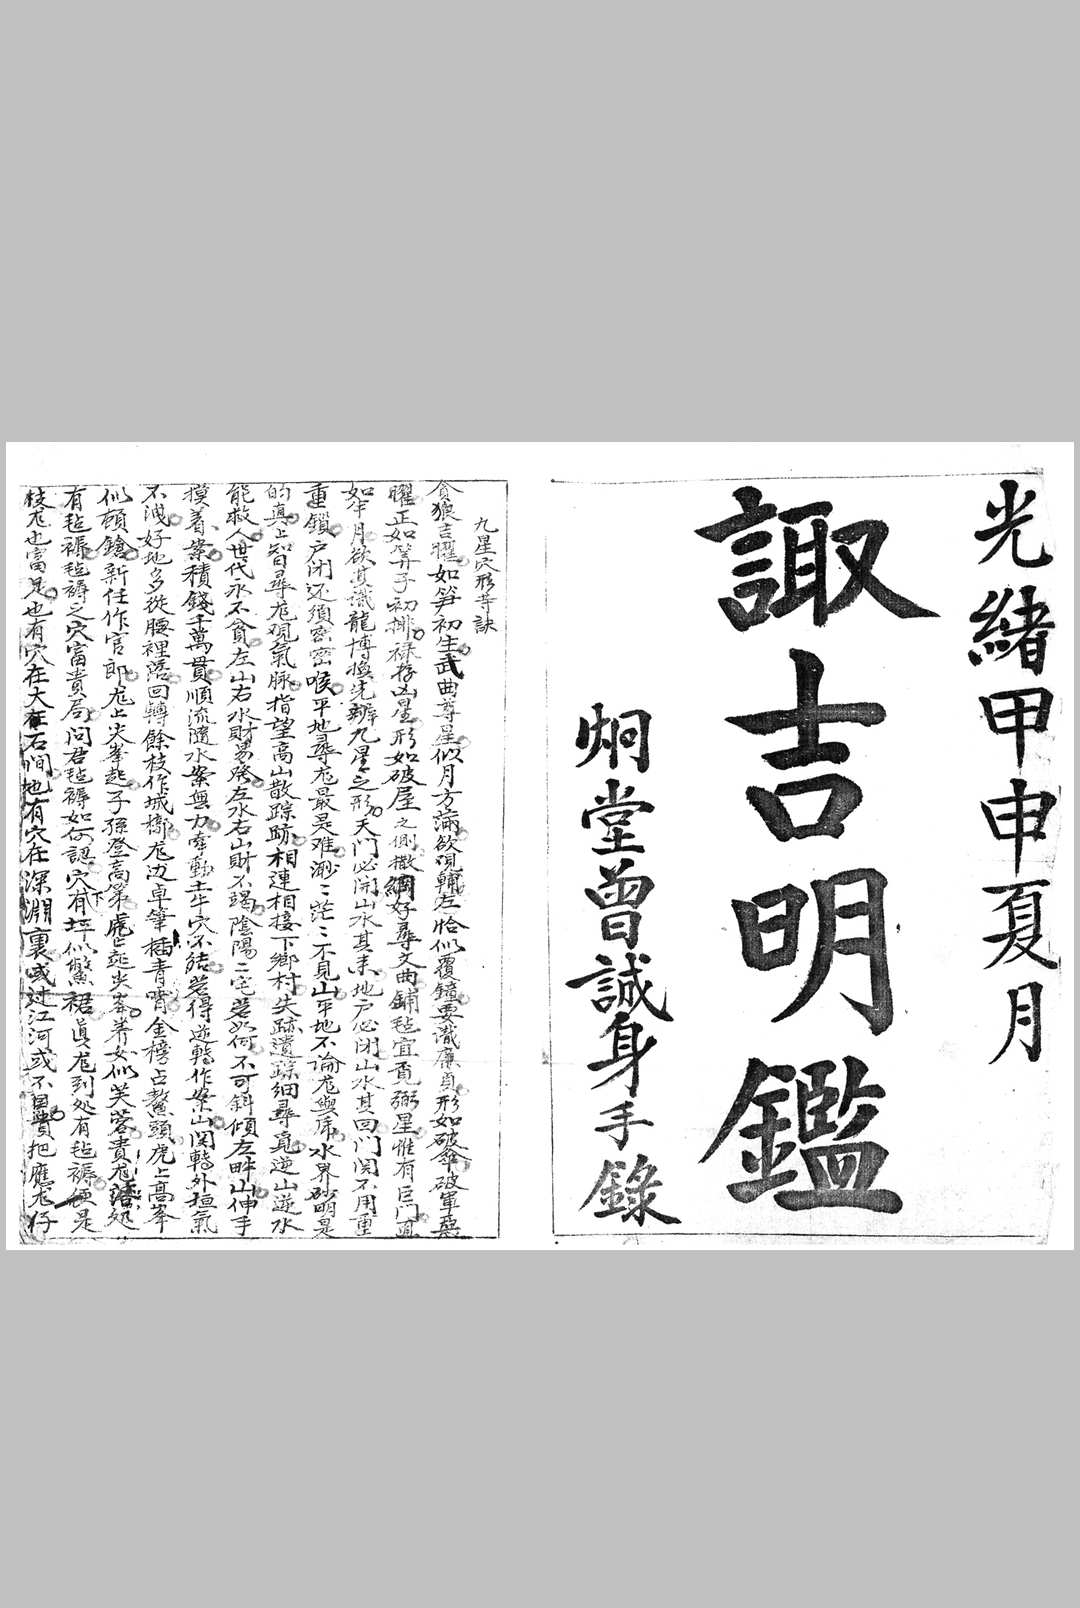 光緒甲申夏月
諏吉明鑑
炯堂曾誠身手錄
九星穴形等訣
貪狼吉曜如笋初生武曲尊星似月方滿欲覌輔左恰似覆鐘要識廉貞形如破傘破軍惡
曜正如筭子初排祿存凶星形如破屋之側撒網好尋文曲鋪毡宜覓弼星惟有巨门直
如半月欲識龍博換先辨九星之形天門必開山水其来地户必闭山水其囬门関不用重
重鎖户闭还須密密喉平地尋尨最是难渺々茫々不見山平地不論尨與虎水界砂明是
的真上智尋尨覌氣脉指望高山散踪跡相連相接下鄉村失跡遺踪细尋覓逆山逆水
能救人世代永不貧左山右水財易發左水右山財不竭陰陽二宅若如何不可斜傾左畔山伸手
摸着案積錢千萬貫順流隨水案無力牽動土牛穴不结若得逆轉作案山関轉外垣氣
不洩好地多從腰裡落囬轉餘枝作城槨尨边卓筆插青霄金榜占鰲頭虎上高峯
似頓鎗新任作官郎尨上尖峯起子孫登高第虎上尖峯养女似芙蓉貴尨落処
有毡褥毡褥之穴富貴局问君毡褥如何認穴下有坪似鱉裙真尨到処有毡褥便是
枝尨也富足也有穴在大石间也有穴在深渊裏或过江河或不畏費把應尨仔